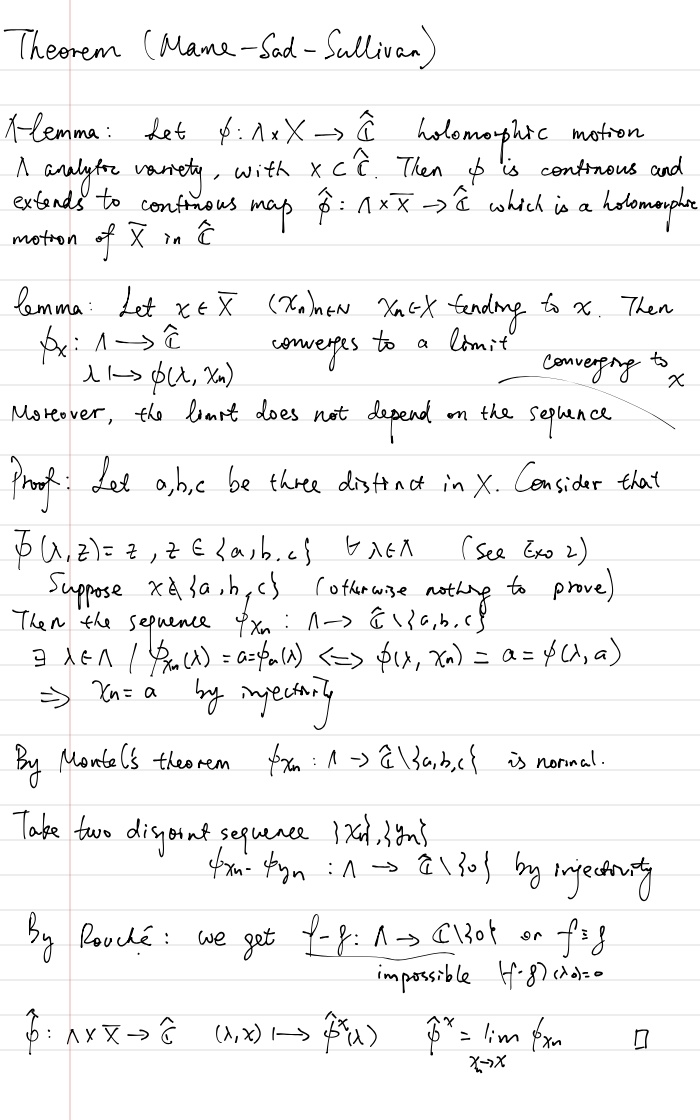 Theorem (Mame-Sad-Sullivan)
Λ-lemma: Let ϕ: Λ×X → Ĉ holomorphic motion
Λ analytic variety, with X ⊂ Ĉ. Then ϕ is continous and
extends to continous map ϕ̂: Λ×X̄ → Ĉ which is a holomorphic
motion of X̄ in Ĉ
lemma: Let x ∈ X̄ (xn)n∈N xn∈X tending to x. Then
ϕx: Λ → Ĉ converges to a limit
λ ↦ ϕ(λ, xn) converging to x
Moreover, the limit does not depend on the sequence
Proof: Let a,b,c be three distinct in X. Consider that
ϕ̄(λ,z)= z, z ∈ {a,b,c} ∀ λ∈Λ (See Exo 2)
Suppose x∉{a,b,c} (otherwise nothing to prove)
Then the sequence ϕxn: Λ→ Ĉ\{a,b,c}
∃ λ∈Λ / ϕxn(λ) = a=ϕa(λ) <=> ϕ(λ, xn) = a = ϕ(λ,a)
=> xn= a by injectivity
By Montel's theorem ϕxn: Λ → Ĉ\{a,b,c} is normal.
Take two disjoint sequence {xn},{yn}
ϕxn- ϕyn : Λ → Ĉ\{0} by injectivity
By Rouché: we get f-g: Λ → ℂ\{0} or f≡g
impossible (f-g)(λ0)=0
ϕ̂: Λ×X̄ → Ĉ (λ,x) ↦ ϕ̂ˣ(λ) ϕ̂ˣ = lim ϕxn □
xn→x